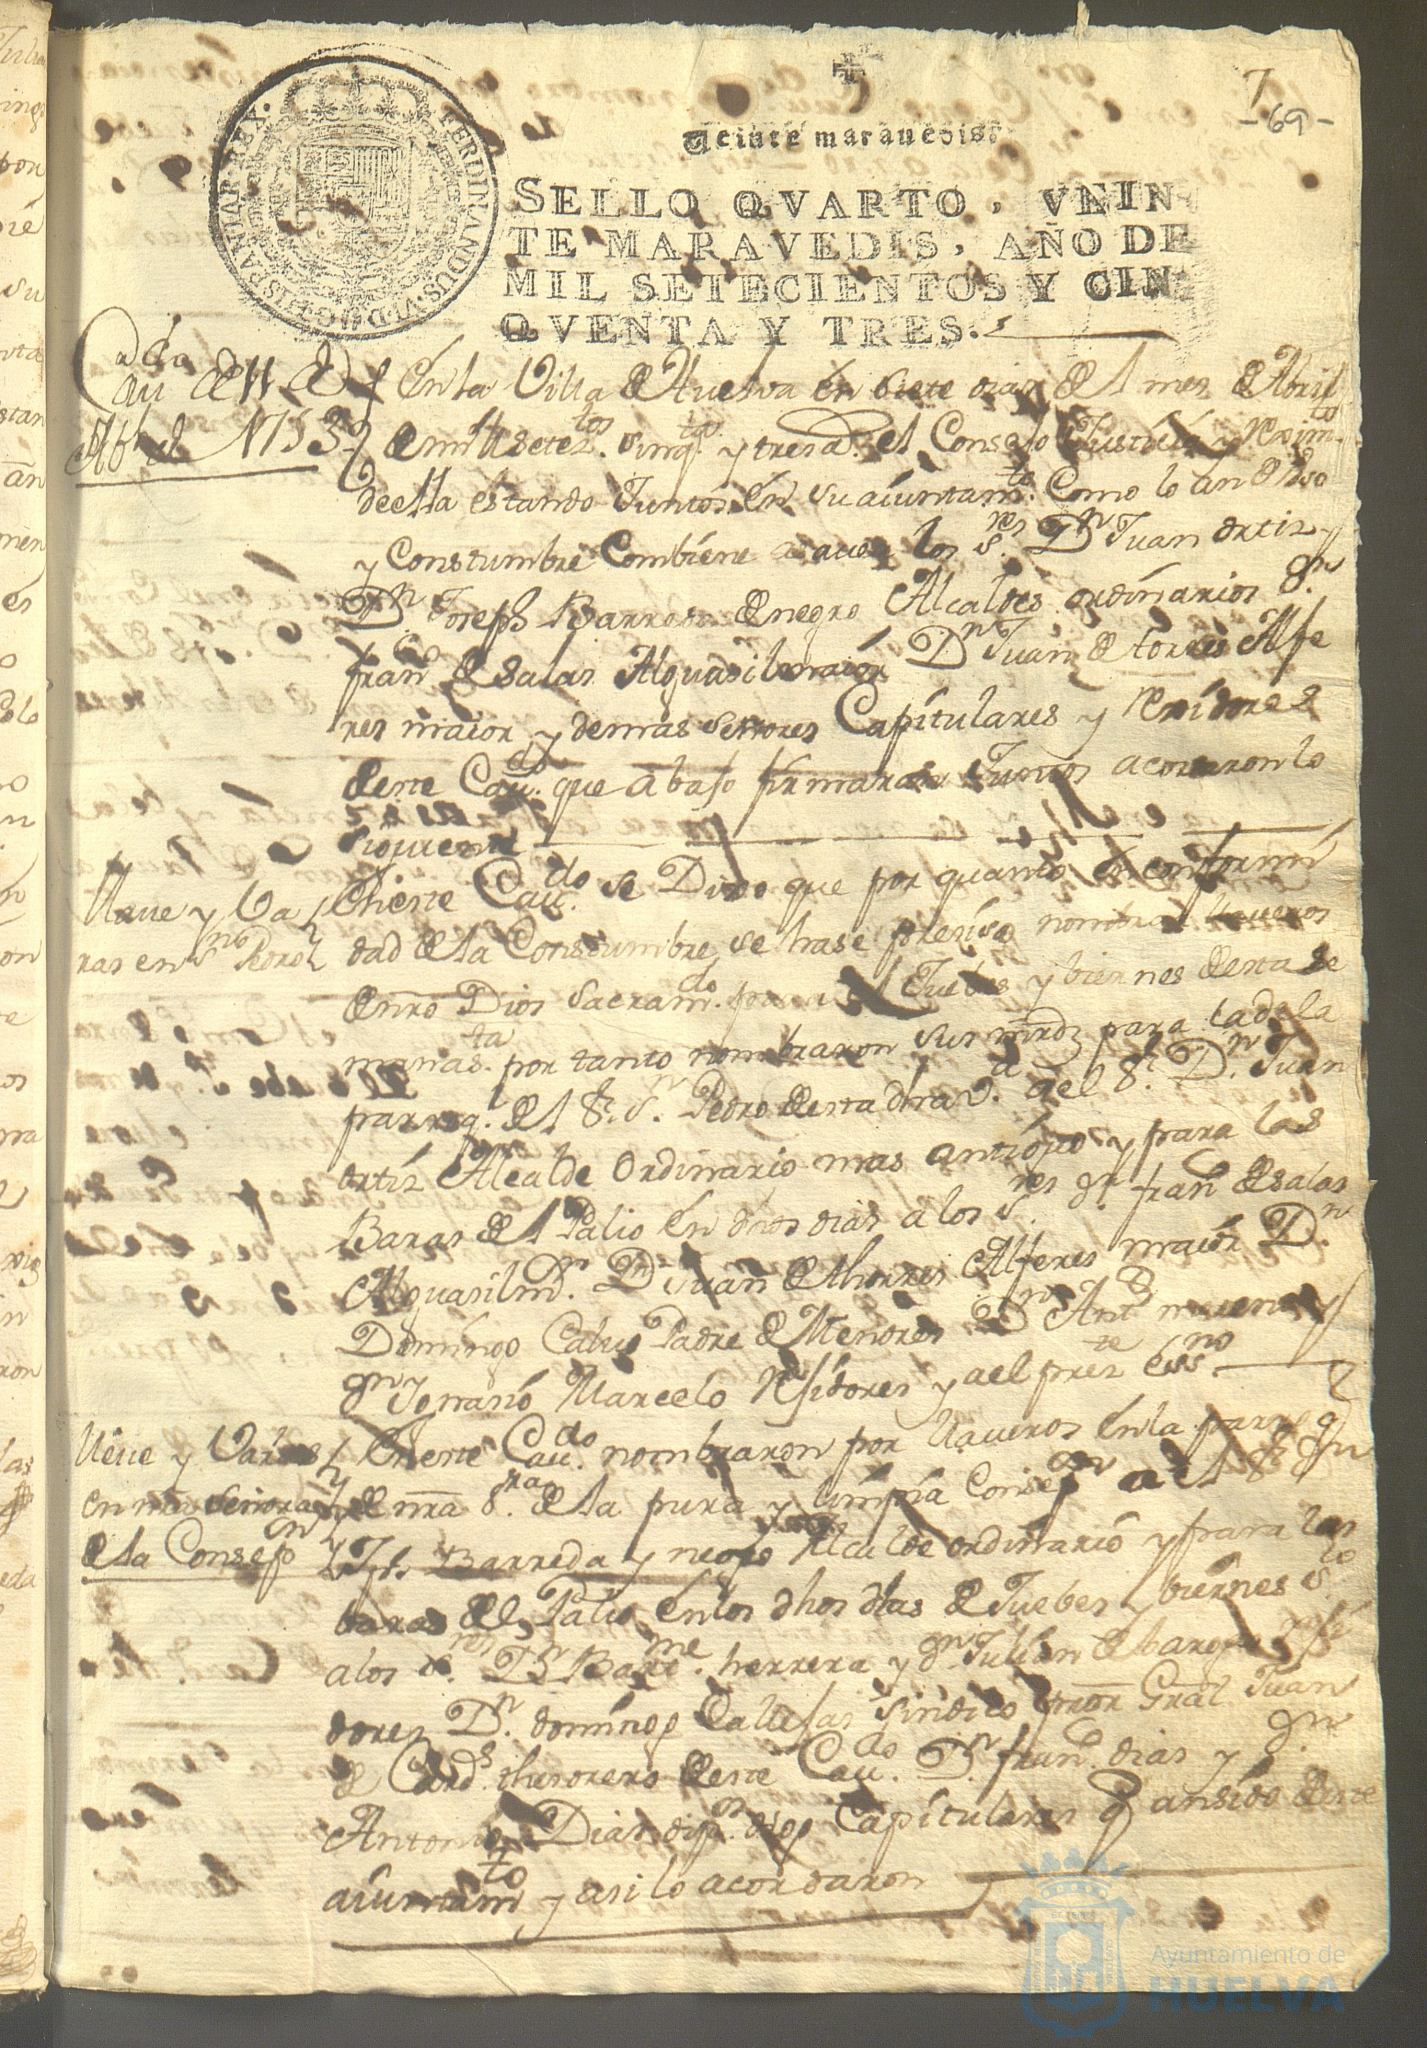 7
-69-
Veinte marauedis.
SELLO QVARTO, VEIN-
TE MARAVEDIS, AÑO DE
MIL SETECIENTOS Y CIN-
QVENTA Y TRES.
FERDINANDUS.VI.D.G.HISPANIAR.REX.
En la Villa de Huelva en siete dias del mes de Abril
Abril 1753
de mill seteztos. sinqta. y tres as. el Consejo Justicia y Reximto
de ella estando Juntos en su aiuntamto. Como lo an de Uso
y Constumbre Combiene a saver los Sres. Dn Juan Ortiz y
Dn Joseph Barreda Negro Alcaldes ordinarios Dn
franco de Salas Alguasil maior Dn Juan de torres Alfe
res maior y demas señores Capitulares y Rexidores
deste Cavdo. que abajo firmaran Juntos acordaron lo
siguiente
Llave y Va
ras en Sn Pedro
En este Cavdo. se Dixo que por quanto en conformi
dad de la Constumbre se hase presiso nombrar llaveros
de nro Dios Sacramdo. para el Juebes y biernes desta se
mana sta. por tanto nombraron sus mrdz para la de la
parroq. de el Sr. Sn. Pedro desta dha Va. a el Sr. Dn. Juan
Ortiz Alcalde Ordinario mas antiguo y para las
Baras de el Palio en dhos dias a los Sres. Dn franco de Salas
Alguasil mr. Dn Juan de thorres Alferes maior Dn
Domingo Calvo Padre de Menores Dn Anto moreno y
Dn Ignasio Marcelo Rejidores y a el prezte Essno
Llave y Varas
en nra Señora
de la Consepn
En este Cavdo. nombraron por llaveros en la parroq
de nra Sra. de la pura y limpia Consepn a el Sr Dn
Jph Barreda y negro Alcalde ordinario y para las
baras de el Palio en los dhos dias de Juebes y biernes sto
a los Sres. Dn Barme. herrera y Dn Julian de Barg Reji
dores Dn. domingo Callejas Sindico pror Gral Juan
de Cards. thesorero deste Cavdo. Dn franco. dias y Dn
Antonio Dias dip. Capitulares q an sido deste
aiuntamto y asi lo acordaron
Ayuntamiento de
HUELVA